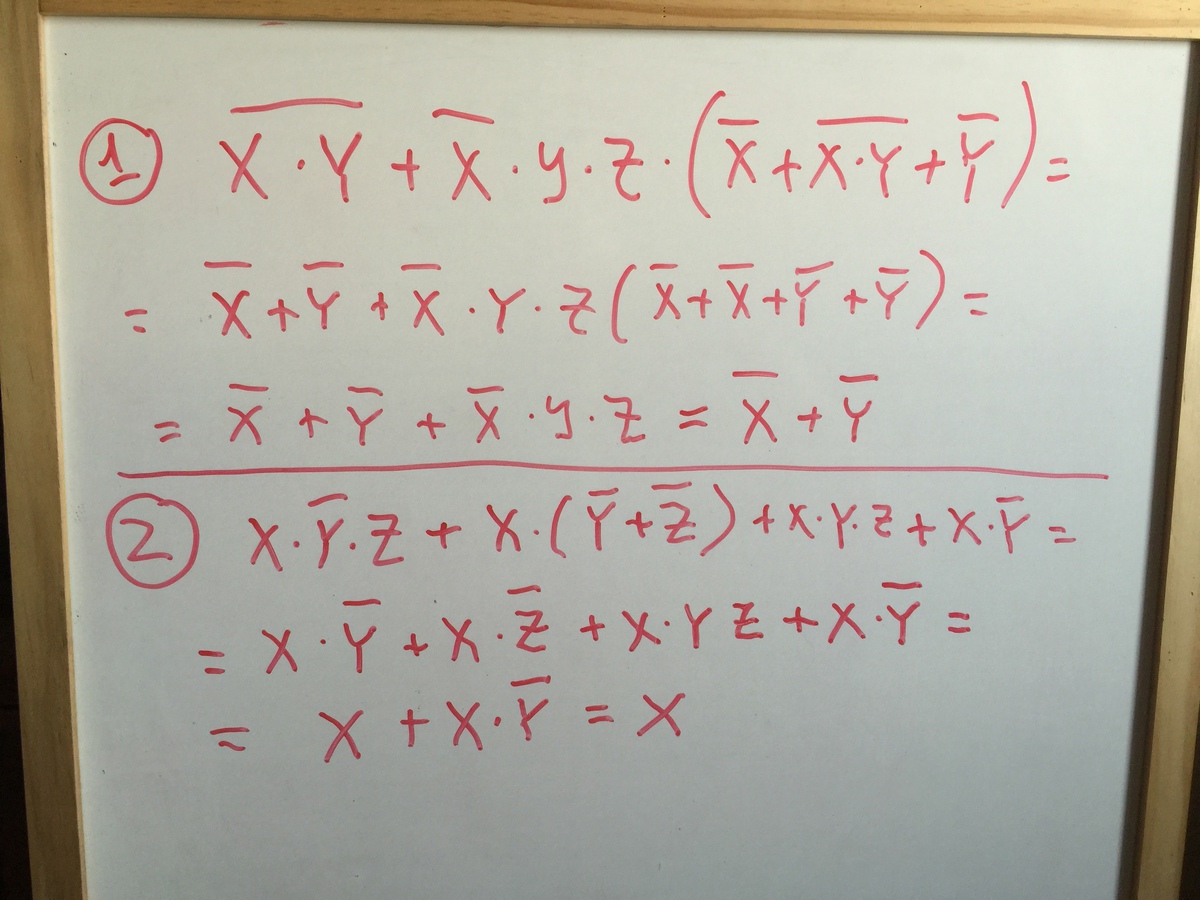 ① X̅ ̅·̅ ̅Y̅ + X̅ · y · Z · (X̅ + X̅ ̅·̅ ̅Y̅ + Y̅) =
= X̅ + Y̅ + X̅ · Y · Z (X̅ + X̅ + Y̅ + Y̅) =
= X̅ + Y̅ + X̅ · y · Z = X̅ + Y̅
② X · Y̅ · Z + X · (Y̅ + Z̅) + X · Y · Z + X · Y̅ =
= X · Y̅ + X · Z̅ + X · Y Z + X · Y̅ =
= X + X · Y̅ = X